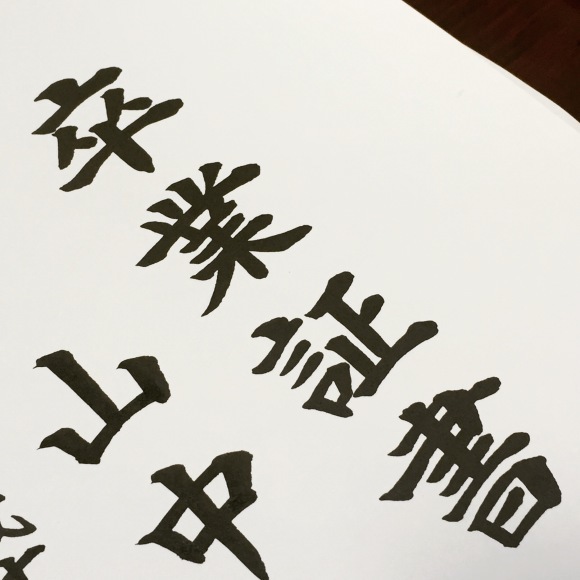 卒業証書
山中